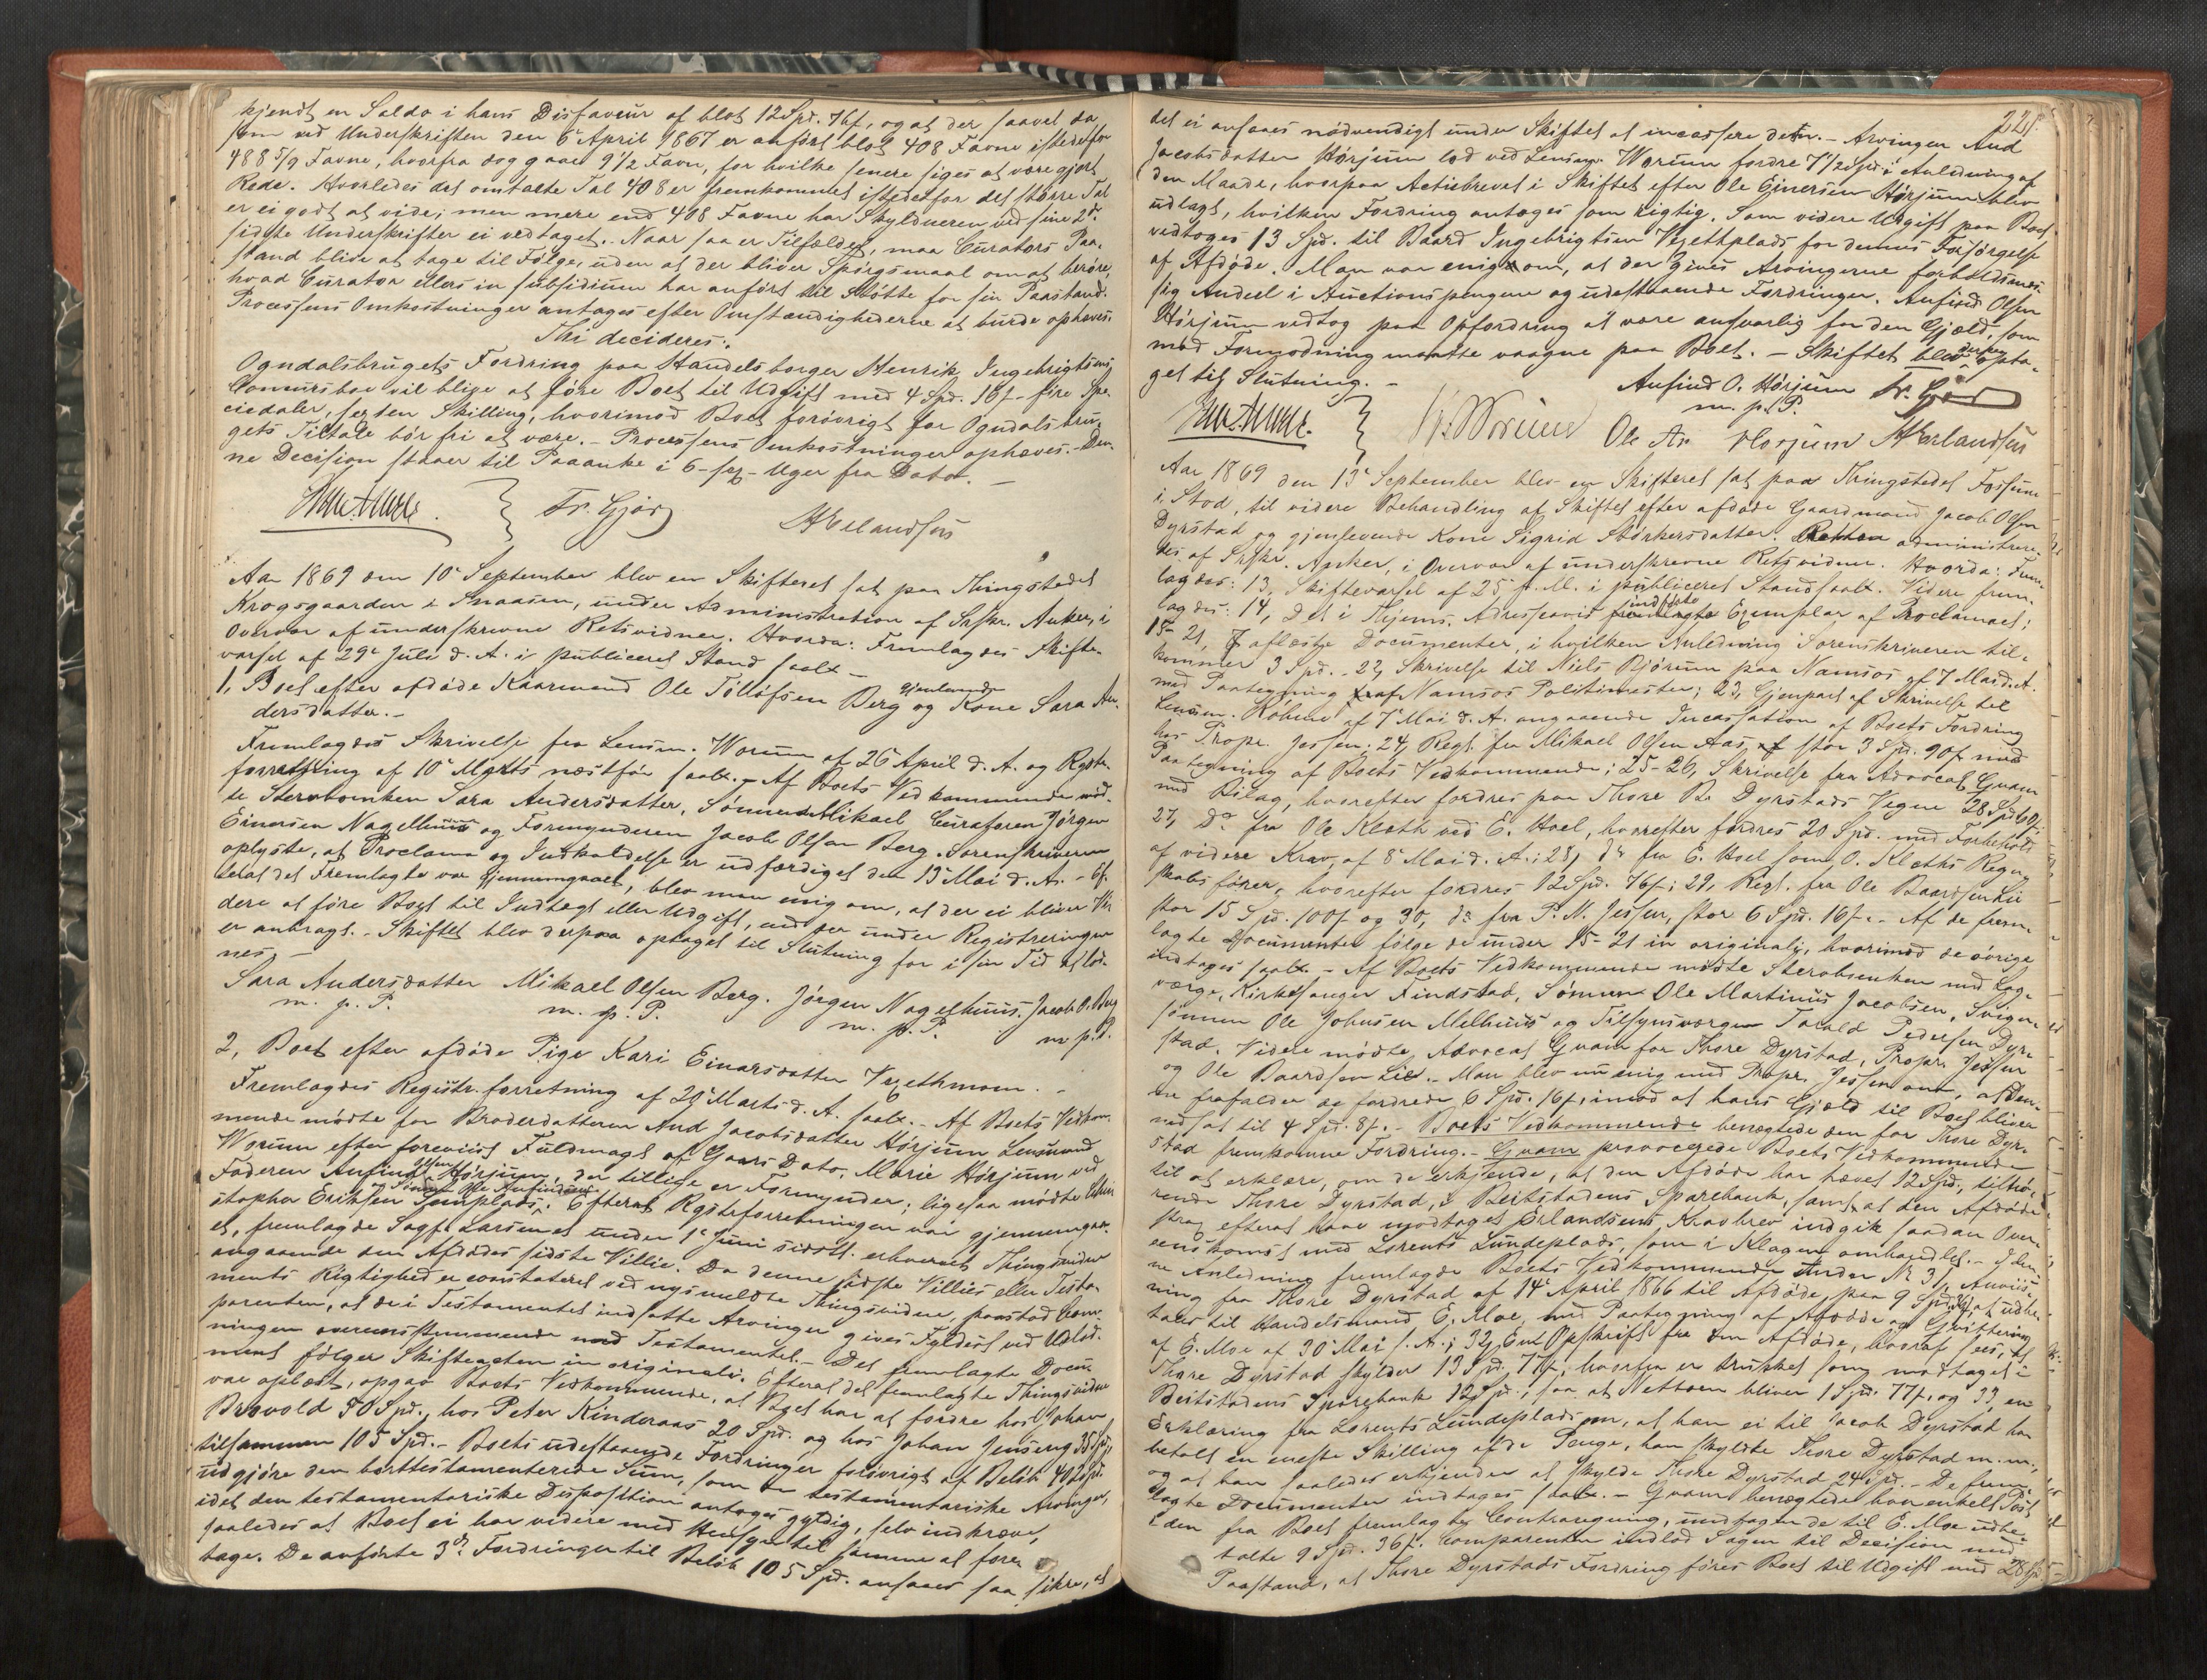 kjendt en Saldo i hans Disfaveur af blot 12 Spd. 7 ſk, og at der saavel da
som ved Underskriften den 6te April 1867 er anført blot 408 Favne istedetfor
488 5/9 Favne, hvorfra dog gaaer 9 1/2 Favn, for hvilke senere siges at være gjort
Rede. Hvorledes det omtalte Tal 408 er fremkommet istedetfor det større Tal
er ei godt at vide; men mere end 408 Favne har Skyldneren ved sine 2de
sidste Underskrifter ei vedtaget. Naar saa er Tilfældet, maa Curators Paa-
stand blive at tage til Følge, uden at der bliver Spørgsmaal om at berøre,
hvad Curator ellers in subsidium har anført til Støtte for sin Paastand.
Processens Omkostninger antages efter Omstændighederne at burde ophæves.
Thi decideres:
Ogndalsbrugets Fordring paa Handelsborger Henrik Ingebrigtsens
Concursbo vil blive at føre Boet til Udgift med 4 Spd. 16 ſ - fire Spe-
ciedaler, sexten Skilling, hvorimod Boet forøvrigt for Ogndalsbru-
gets Tiltale bør fri at være. - Processens Omkostninger ophæves. - Den-
ne Decision staaer til Paaanke i 6 - sex - Uger fra Dato. -
Fr. Gjør H Erlandsen
Aar 1869 den 10de September blev en Skifteret sat paa Thingstedet
Krogsgaarden i Snaasen, under Administration af Sskr. Anker, i
Overvær af underskrevne Retsvidner. Hvorda: Fremlagdes Skifte-
varsel af 29de Juli d. A. i publiceret Stand saalt. -
1, Boet efter afdøde Kaarmand Ole Tollefsen Berg og gjenlevende Kone Sara An-
dersdatter. -
Fremlagdes Skrivelse fra Lensm. Worum af 26 April d. A. og Rgstr.
forretning af 10de Marts næstfør saalt. - Af Boets Vedkommende mød-
te Sterboenken Sara Andersdatter, Sønnen Mikael Curatoren Jørgen
Einersen Nagelhuus og Formynderen Jacob Olsen Berg. Sorenskriveren
oplyste, at Proclama og Indkaldelse er udfærdiget den 13de Mai d. A. - Ef-
terat det Fremlagte var gjennemgaaet, blev man enig om, at der ei bliver Vi-
dere at føre Boet til Indtægt eller Udgift, end der under Registreringen
er anbragt. - Skiftet blev derpaa optaget til Slutning for i sin Tid at slut-
nes. -
Sara Andersdatter Mikael Olsen Berg. Jørgen Nagelhuus. Jacob O. Berg
m. p. P. m. p. P. m. p. P. m. p. P.
2, Boet efter afdøde Pige Kari Einarsdatter Vexethmoen.
Fremlagdes Registr. forretning af 20de Marts d. A. saalt. - Af Boets Vedkom-
mende mødte for Broderdatteren And Jacobsdatter Hørjum Lensmand
Worum efter foreviist Fuldmagt af Gaars Dato. Marie Hørjum ved
Faderen Anfind Olsen Hørjum, der tillige er Formynder; ligesaa mødte Chri-
stopher Eriksen Semplads og Sønnen Ole Anfindsen. Efterat Rgstrforretningen var gjennemgaa-
et, fremlagde Sagf. Larsen et under 1ste Juni sidstl. erhvervet Thingsvidne
angaaende den Afdødes sidste Villie. Da denne sidste Villies eller Testa-
ments Rigtighed er constateret ved nysmeldte Thingsvidne, paastod Com-
parenten, at de i Testamentet indsatte Arvinger gives Fyldest ved Udlod-
ningen overensstemmende med Testamentet. - Det fremlagte Docu-
ment følger Skifteacten in originali. Efterat det fremlagte Thingsvidne
var oplæst, opgav Boets Vedkommende, at Boet har at fordre hos Johan
Brovold 50 Spd., hos Peter Kinderaas 20 Spd. og hos Johan Jenseng 35 Spd.,
tilsammen 105 Spd. - Boets udestaaende Fordringer forøvrigt af Beløb 402 Spd.
udgjøre den borttestamenterede Sum, som de testamentariske Arvinger,
idet den testamentariske Disposition antages gyldig, selv indkræve,
saaledes at Boet ei har videre med Hensyn til samme at føre
tage. De anførte 3de Fordringer til Beløb 105 Spd. ansaaes saa sikre, at
221.
det ei ansaaes nødvendigt under Skiftet at incassere dem. - Arvingen And
Jacobsdatter Hørjum lod ved Lensm. Worum fordre 7 1/2 Spd. i Anledning af
den Maade, hvorpaa Actiebrevet i Skiftet efter Ole Einersen Hørjum blev
udlagt, hvilken Fordring antages som rigtig. Som videre Udgift paa Boet
vedtoges 13 Spd. til Baard Ingebrigtsen Vexethplads for dennes Forsørgelse
af Afdøde. Man var enig om, at der gives Arvingerne forholdsmæs-
sig Andeel i Auctionspengene og udestaaende Fordringer. Anfind Olsen
Hørjum vedtog paa Opfordring at være ansvarlig for den Gjæld, som
mod Formodning maatte vaagne paa Boet. - Skiftet blev derpaa opta-
get til Slutning. -
Anfind O. Hørjum Fr. Gjør
m. p. P.
Worum Ole An. Hørjum H Erlandsen
Aar 1869 den 13de September blev en Skifteret sat paa Thingstedet Fossum
i Stod, til videre Behandling af Skiftet efter afdøde Gaardmand Jacob Olsen
Dyrstad og gjenlevende Kone Sigrid Størkersdatter. Retten administrere-
des af Sskr. Anker, i Overvær af underskrevne Retsvidner. Hvorda: Frem-
lagdes: 13, Skiftevarsel af 25de f. M. i publiceret Stand saalt. Videre frem-
lagdes: 14, Det i Thjems. Adresseavis indsatte Exemplar af Proclamaet;
15-21, 7 aflæste Documenter, i hvilken Anledning Sorenskriveren til-
kommer 3 Spd. - 22, Skrivelse til Niels Bjørum paa Namsos af 7 Mai d. A.
med Paategning af Namsos Politimester; 23, Gjenpart af Skrivelse til
Lensm. Røhme af 7de Mai d. A. angaaende Incassation af Boets Fordring
hos Propr. Jessen; 24, Regl. fra Mikael Olsen Aas, stor 3 Spd. 90 ſ med
Paategning af Boets Vedkommende; 25-26, Skrivelse fra Advocat Gram
med Bilag, hvorefter fordres paa Thore B. Dyrstads Vegne 28 Spd.
27, Do fra Ole Kloeth ved E. Hoel, hvorefter fordres 20 Spd. med Forbehold
af videre Krav, af 8de Mai d. A.; 28, do fra E. Hoel som O. Kloeths Regn-
skabsfører, hvorefter fordres 12 Spd. 76 ſ; 29, Regl. fra Ole Baardsen Lie
stor 15 Spd. 100 ſ og 30, do fra P. N. Jessen, stor 6 Spd. 16 ſ. - Af de frem-
lagte Documenter følge de under 15-21 in originali, hvorimod de øvrige
indtages saalt. - Af Boets Vedkommende mødte Sterboenken med Lag-
værge, Kirkesanger Findstad, Sønnen Ole Martinus Jacobsen, Sviger-
sønnen Ole Johnsen Melhuus og Tilsynsværgen Torald Pedersen Dyr-
stad. Videre mødte Advocat Gram for Thore Dyrstad, Propr. Jessen
og Ole Baardsen Lie. - Man blev nu enig med Propr. Jessen om, at den-
ne frafalder de fordrede 6 Spd. 16 ſ, imod at hans Gjæld til Boet bliver
nedsat til 4 Spd. 8 ſ. - Boets Vedkommende benegtede den for Thore Dyr-
stad fremkomne Fordring. - Gram provocerede Boets Vedkommende
til at erklære, om de erkjende, at den Afdøde har hævet 12 Spd., tilhø-
rende Thore Dyrstad, i Beitstadens Sparebank, samt at den Afdøde
strax efterat have modtaget Erlandsens Kravbrev indgik saadan Over-
eenskomst med Lorents Lundeplads, som i Klagen omhandlet. - I den-
ne Anledning fremlagde Boets Vedkommende under No 31, Anviis-
ning fra Thore Dyrstad af 14de April 1866 til Afdøde, paa 9 Spd. at udbe-
tales til Handelsmand E. Moe, med Paategning af Afdøde og Qvittering
af E. Moe af 30de Mai s. A.; 32, En Opskrift fra den Afdøde, hvoraf sees, at
Thore Dyrstad skylder 13 Spd. 77 ſ, hvorfra er trukket som modtaget i
Beitstadens Sparebank 12 Spd., saa at Nettoen bliver 1 Spd. 77 ſ. og 33, en
Erklæring fra Lorents Lundeplads om, at han ei til Jacob Dyrstad har
betalt en eneste Skilling af de Penge, han skyldte Thore Dyrstad m. m.,
og at han saaledes erkjender at skylde Thore Dyrstad 24 Spd. - De frem-
lagte Documenter indtages saalt. - Gram benegtede hver enkelt Post
i den fra Boet fremlagte Contraregning, undtagen de til E. Moe udbe-
talte 9 Spd. 36 ſ. Comparenten indlod Sagen til Decision med
Paastand, at Thore Dyrstads Fordring føres Boet til Udgift med 28 Spd